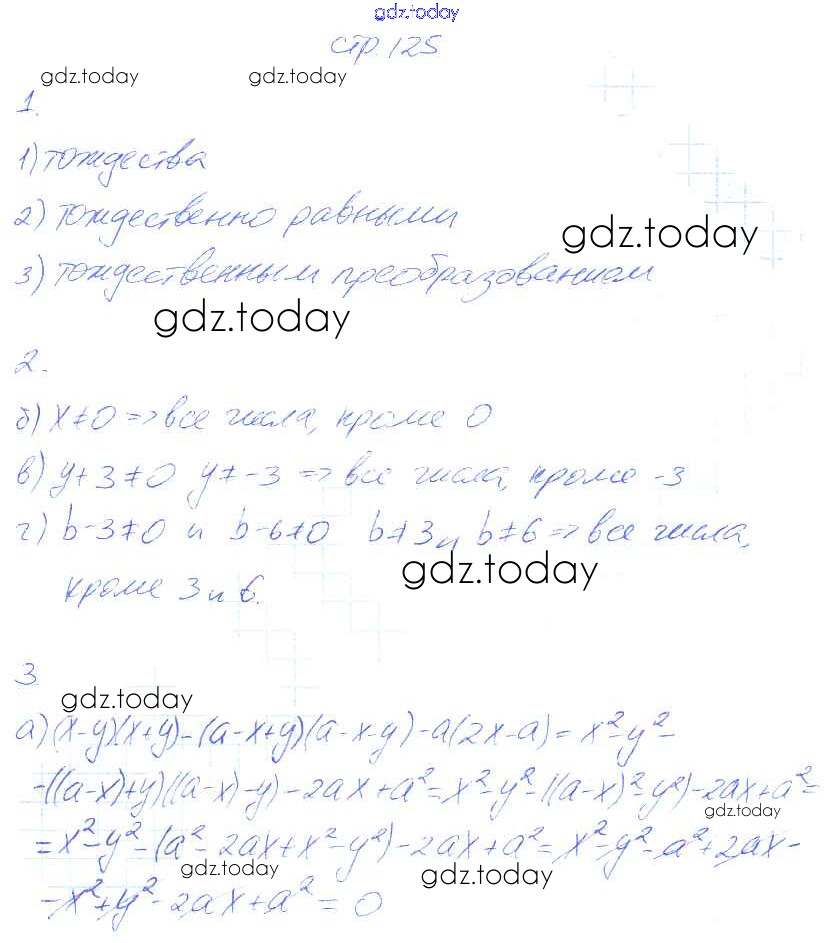 gdz.today
стр. 125
gdz.today gdz.today
1.
1) тождества
2) тождественно равными
gdz.today
3) тождественным преобразованием
gdz.today
2.
б) x≠0 => все числа, кроме 0
в) y+3≠0 y≠-3 => все числа, кроме -3
г) b-3≠0 и b-6≠0 b≠3 и b≠6 => все числа,
gdz.today
кроме 3 и 6.
3.
gdz.today
а) (x-y)(x+y)-(a-x+y)(a-x-y)-a(2x-a)=x²-y²-
-((a-x)+y)((a-x)-y)-2ax+a²=x²-y²-((a-x)²-y²)-2ax+a²=
gdz.today
=x²-y²-(a²-2ax+x²-y²)-2ax+a²=x²-y²-a²+2ax-
gdz.today gdz.today
-x²+y²-2ax+a²=0